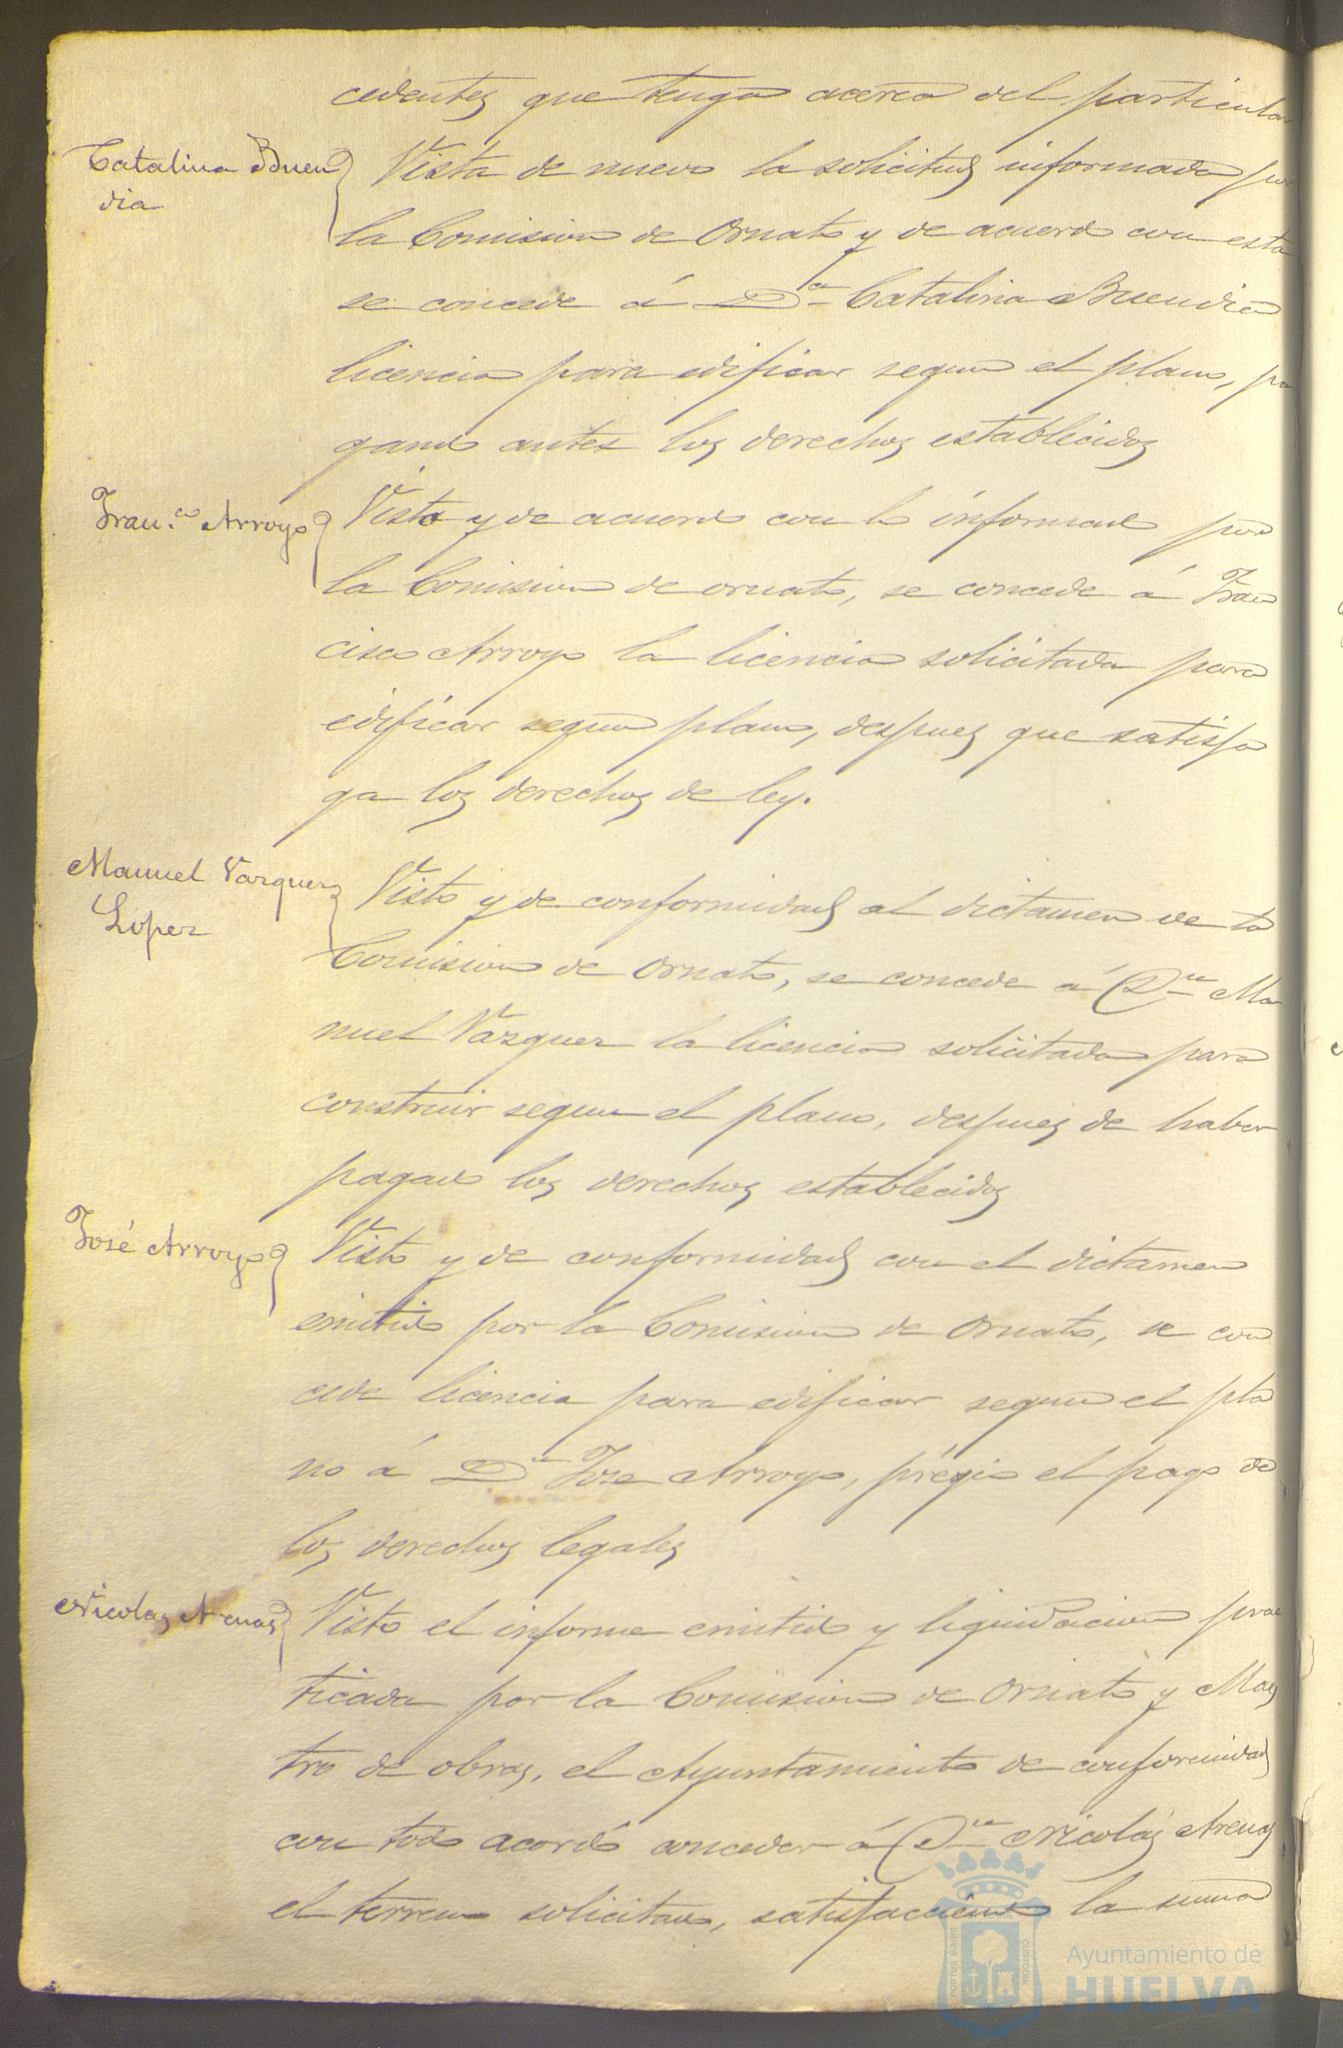 cedentes que tenga acerca del particular
Catalina Buen
dia
Vista de nuevo la solicitud informada por
la Comision de Ornato y de acuerdo con esta
se concede á Dª Catalina Buendia
licencia para edificar segun el plano, pa
gando antes los derechos establecidos
Franco Arroyo
Visto y de acuerdo con lo informado por
la Comision de ornato, se concede á Fran
cisco Arroyo la licencia solicitada para
edificar segun plano, despues que satisfa
ga los derechos de ley.
Manuel Vazquez
Lopez
Visto y de conformidad al dictamen de la
Comision de Ornato, se concede á Dn Ma
nuel Vazquez la licencia solicitada para
construir segun el plano, despues de haber
pagado los derechos establecidos
José Arroyo
Visto y de conformidad con el dictamen
emitido por la Comision de Ornato, se con
cede licencia para edificar segun el pla
no á Dn Jose Arroyo, prévio el pago de
los derechos legales
Nicolas Arenas
Visto el informe emitido y liquidacion prac
ticada por la Comision de Ornato y Maes
tro de obras, el Ayuntamiento de conformidad
con todo acordó conceder á Dn Nicolás Arenas
el terreno solicitado, satisfaciendo la suma
PORTUS MARIS
CUSTODIA
Ayuntamiento de
HUELVA